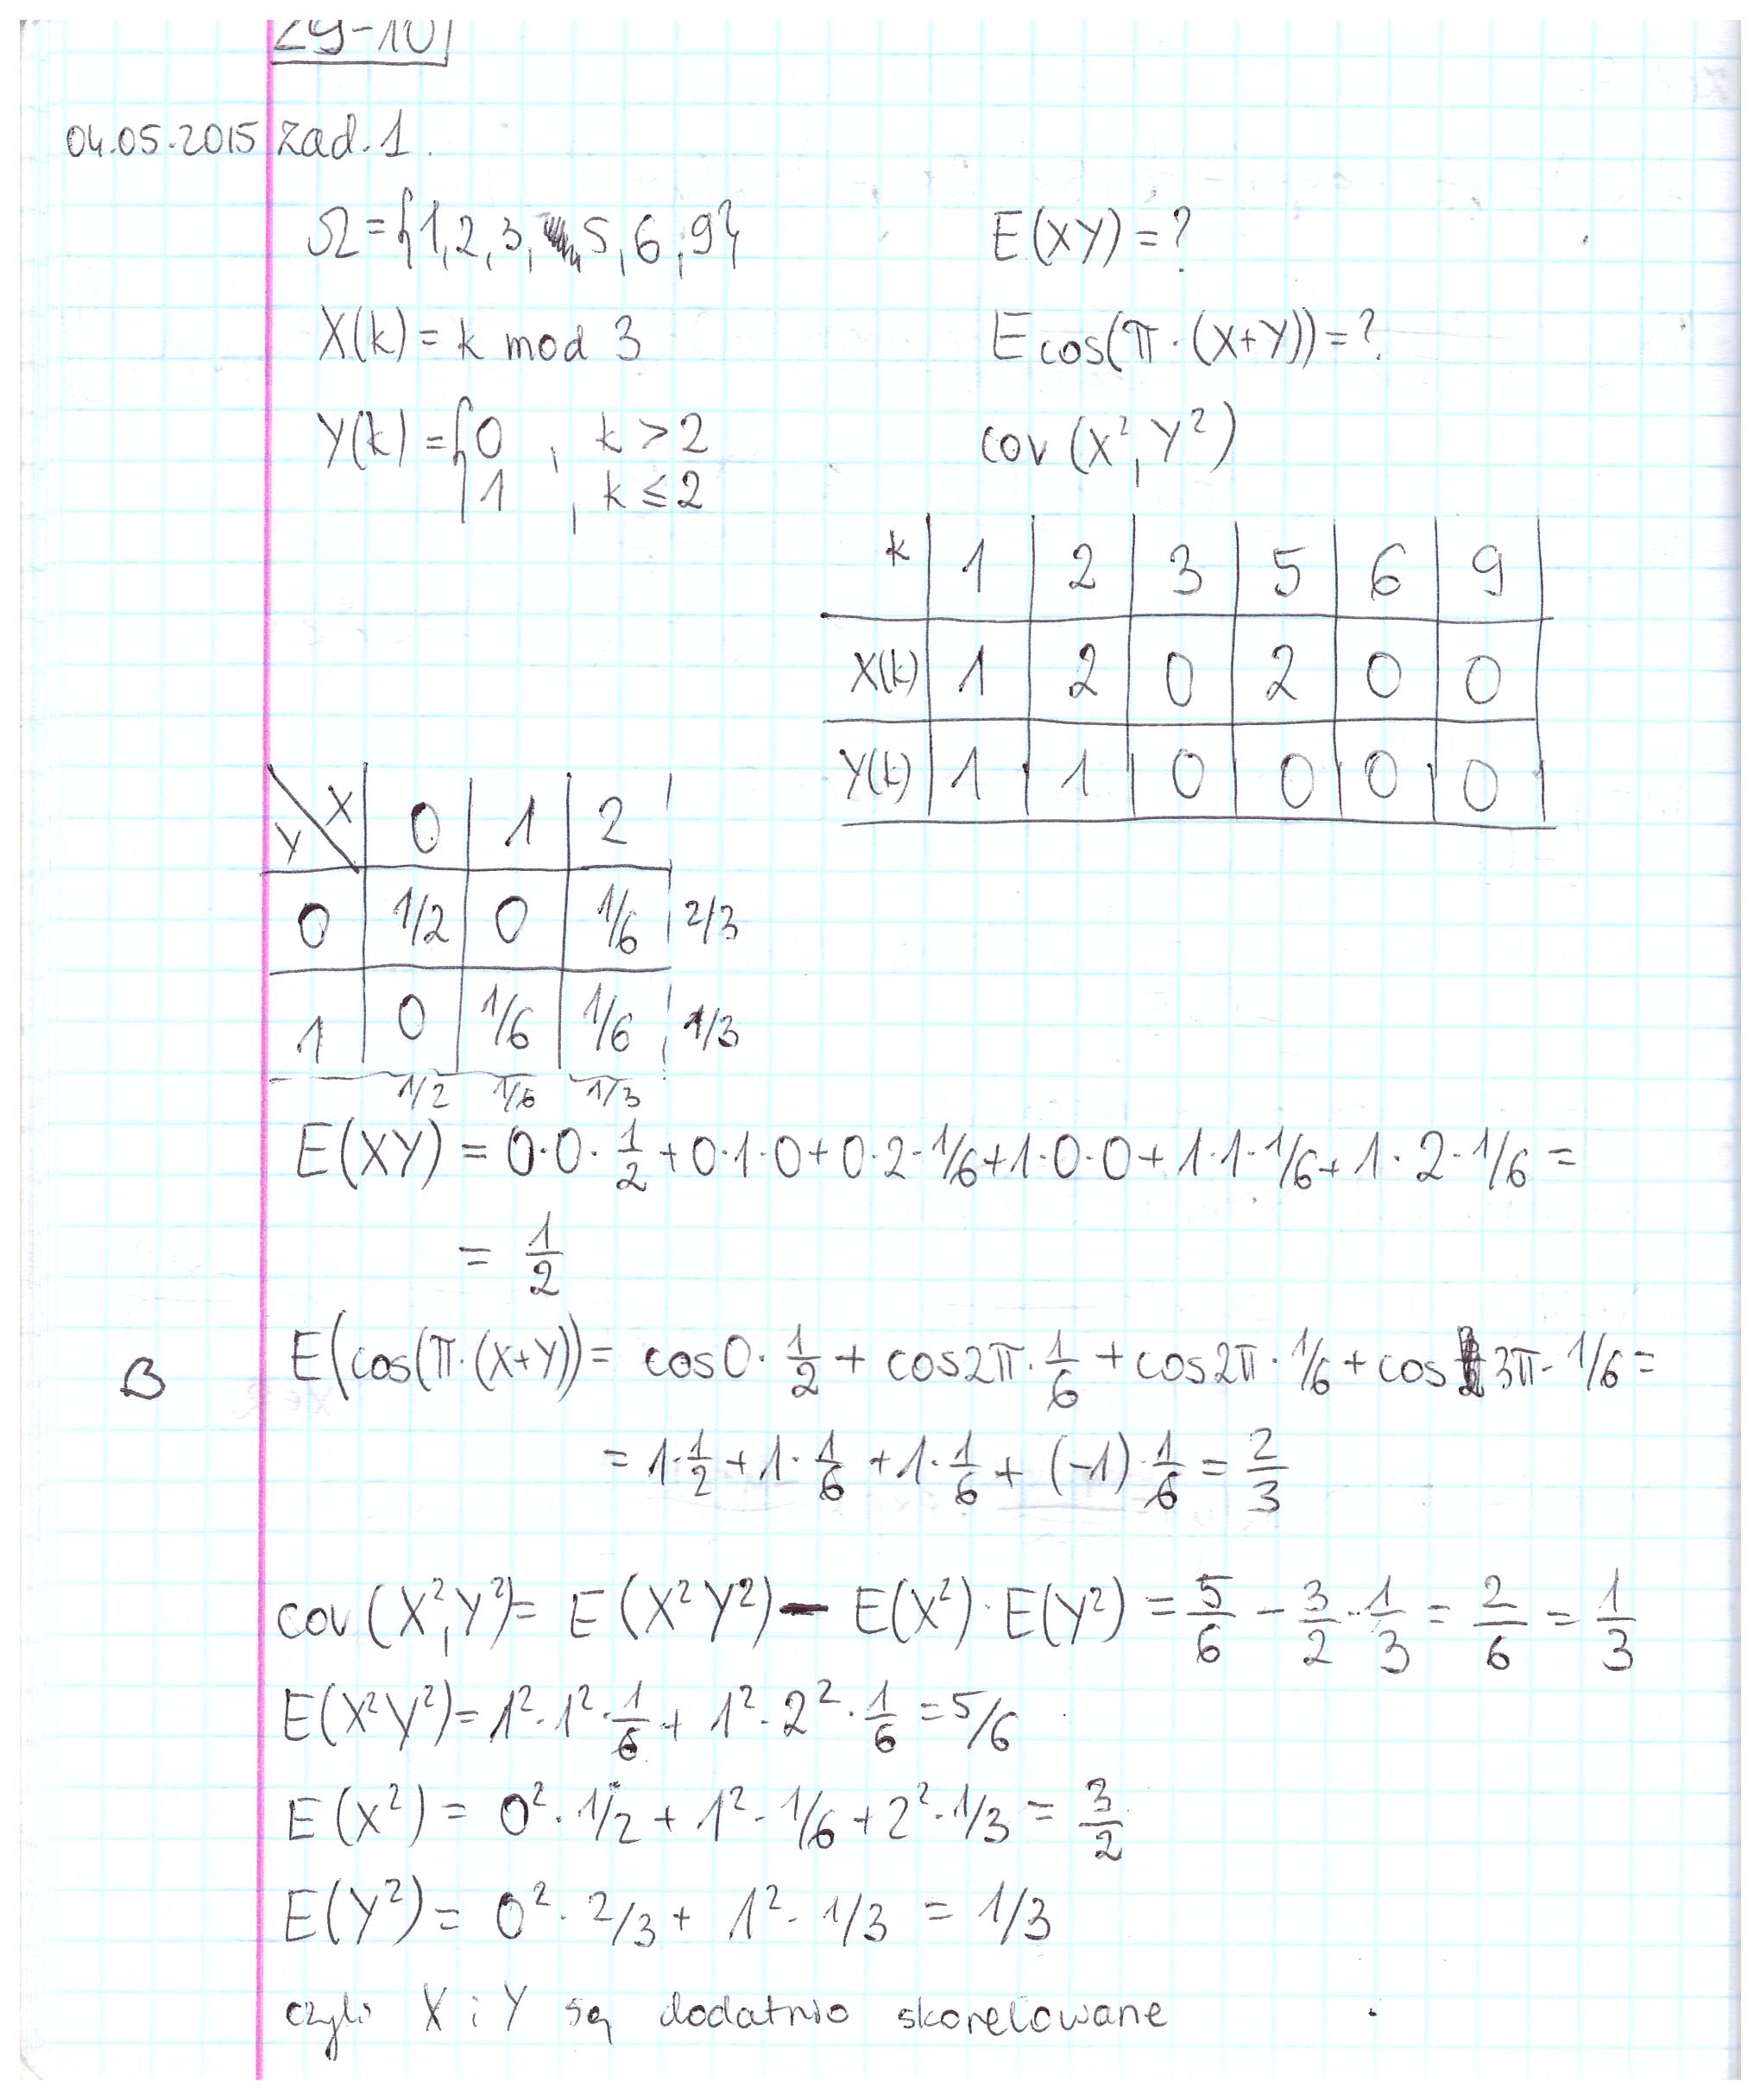 Zg-10
04.05.2015 zad. 1.
Ω = {1, 2, 3, 5, 6, 9}
E(XY) = ?
X(k) = k mod 3
E cos(π · (X+Y)) = ?
Y(k) = { 0 , k > 2
1 , k ≤ 2
cov (X², Y²)
k | 1 | 2 | 3 | 5 | 6 | 9
X(k) | 1 | 2 | 0 | 2 | 0 | 0
Y(k) | 1 | 1 | 0 | 0 | 0 | 0
Y \ X | 0 | 1 | 2
0 | 1/2 | 0 | 1/6 | 2/3
1 | 0 | 1/6 | 1/6 | 1/3
1/2 1/6 1/3
E(XY) = 0·0· 1/2 + 0·1·0 + 0·2·1/6 + 1·0·0 + 1·1·1/6 + 1·2·1/6 =
= 1/2
B E(cos(π·(X+Y)) = cos0 · 1/2 + cos2π · 1/6 + cos2π · 1/6 + cos 3π · 1/6 =
= 1· 1/2 + 1· 1/6 + 1· 1/6 + (-1) · 1/6 = 2/3
cov (X², Y²) = E (X² Y²) - E(X²) · E(Y²) = 5/6 - 3/2 · 1/3 = 2/6 = 1/3
E(X²Y²) = 1² · 1² · 1/6 + 1² · 2² · 1/6 = 5/6
E(X²) = 0² · 1/2 + 1² · 1/6 + 2² · 1/3 = 3/2
E(Y²) = 0² · 2/3 + 1² · 1/3 = 1/3
czyli X i Y są dodatnio skorelowane